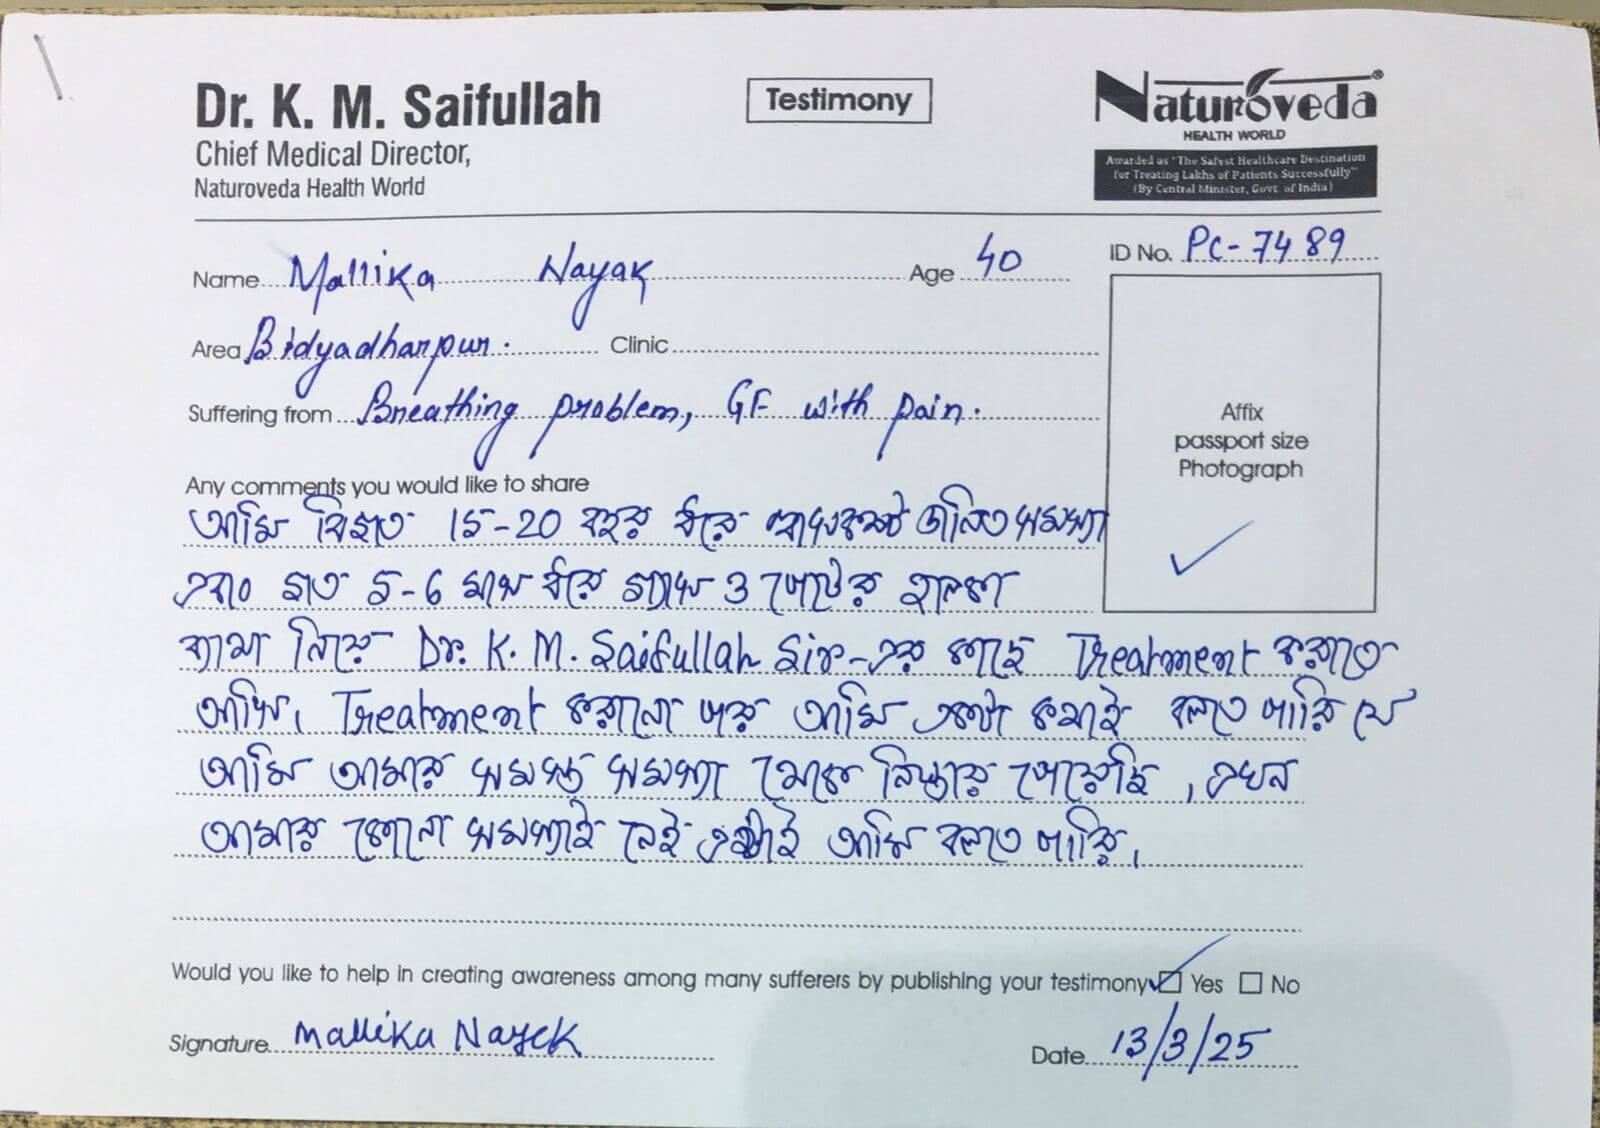 Dr. K. M. Saifullah
Chief Medical Director,
Naturoveda Health World
Testimony
Naturoveda®
HEALTH WORLD
Awarded as "The Safest Healthcare Destination
for Treating Lakhs of Patients Successfully"
(By Central Minister, Govt. of India)
Name Mallika Nayak Age 40
ID No. PC-7489
Area Bidyadharpur. Clinic
Suffering from Breathing problem, GF with pain.
Affix
passport size
Photograph
Any comments you would like to share
আমি বিগত 15-20 বছর ধরে শ্বাসকষ্ট জনিত সমস্যা
এবং গত 5-6 মাস ধরে গ্যাস ও পেটের হালকা
ব্যাথা নিয়ে Dr. K. M. Saifullah Sir-এর কাছে Treatment করাতে
আসি। Treatment করানো পর আমি একটা কথাই বলতে পারি যে
আমি আমার সমস্ত সমস্যা থেকে নিস্তার পেয়েছি, এখন
আমার কোনো সমস্যাই নেই এটাই আমি বলতে পারি।
Would you like to help in creating awareness among many sufferers by publishing your testimony Yes No
Signature Mallika Nayek
Date 13/3/25